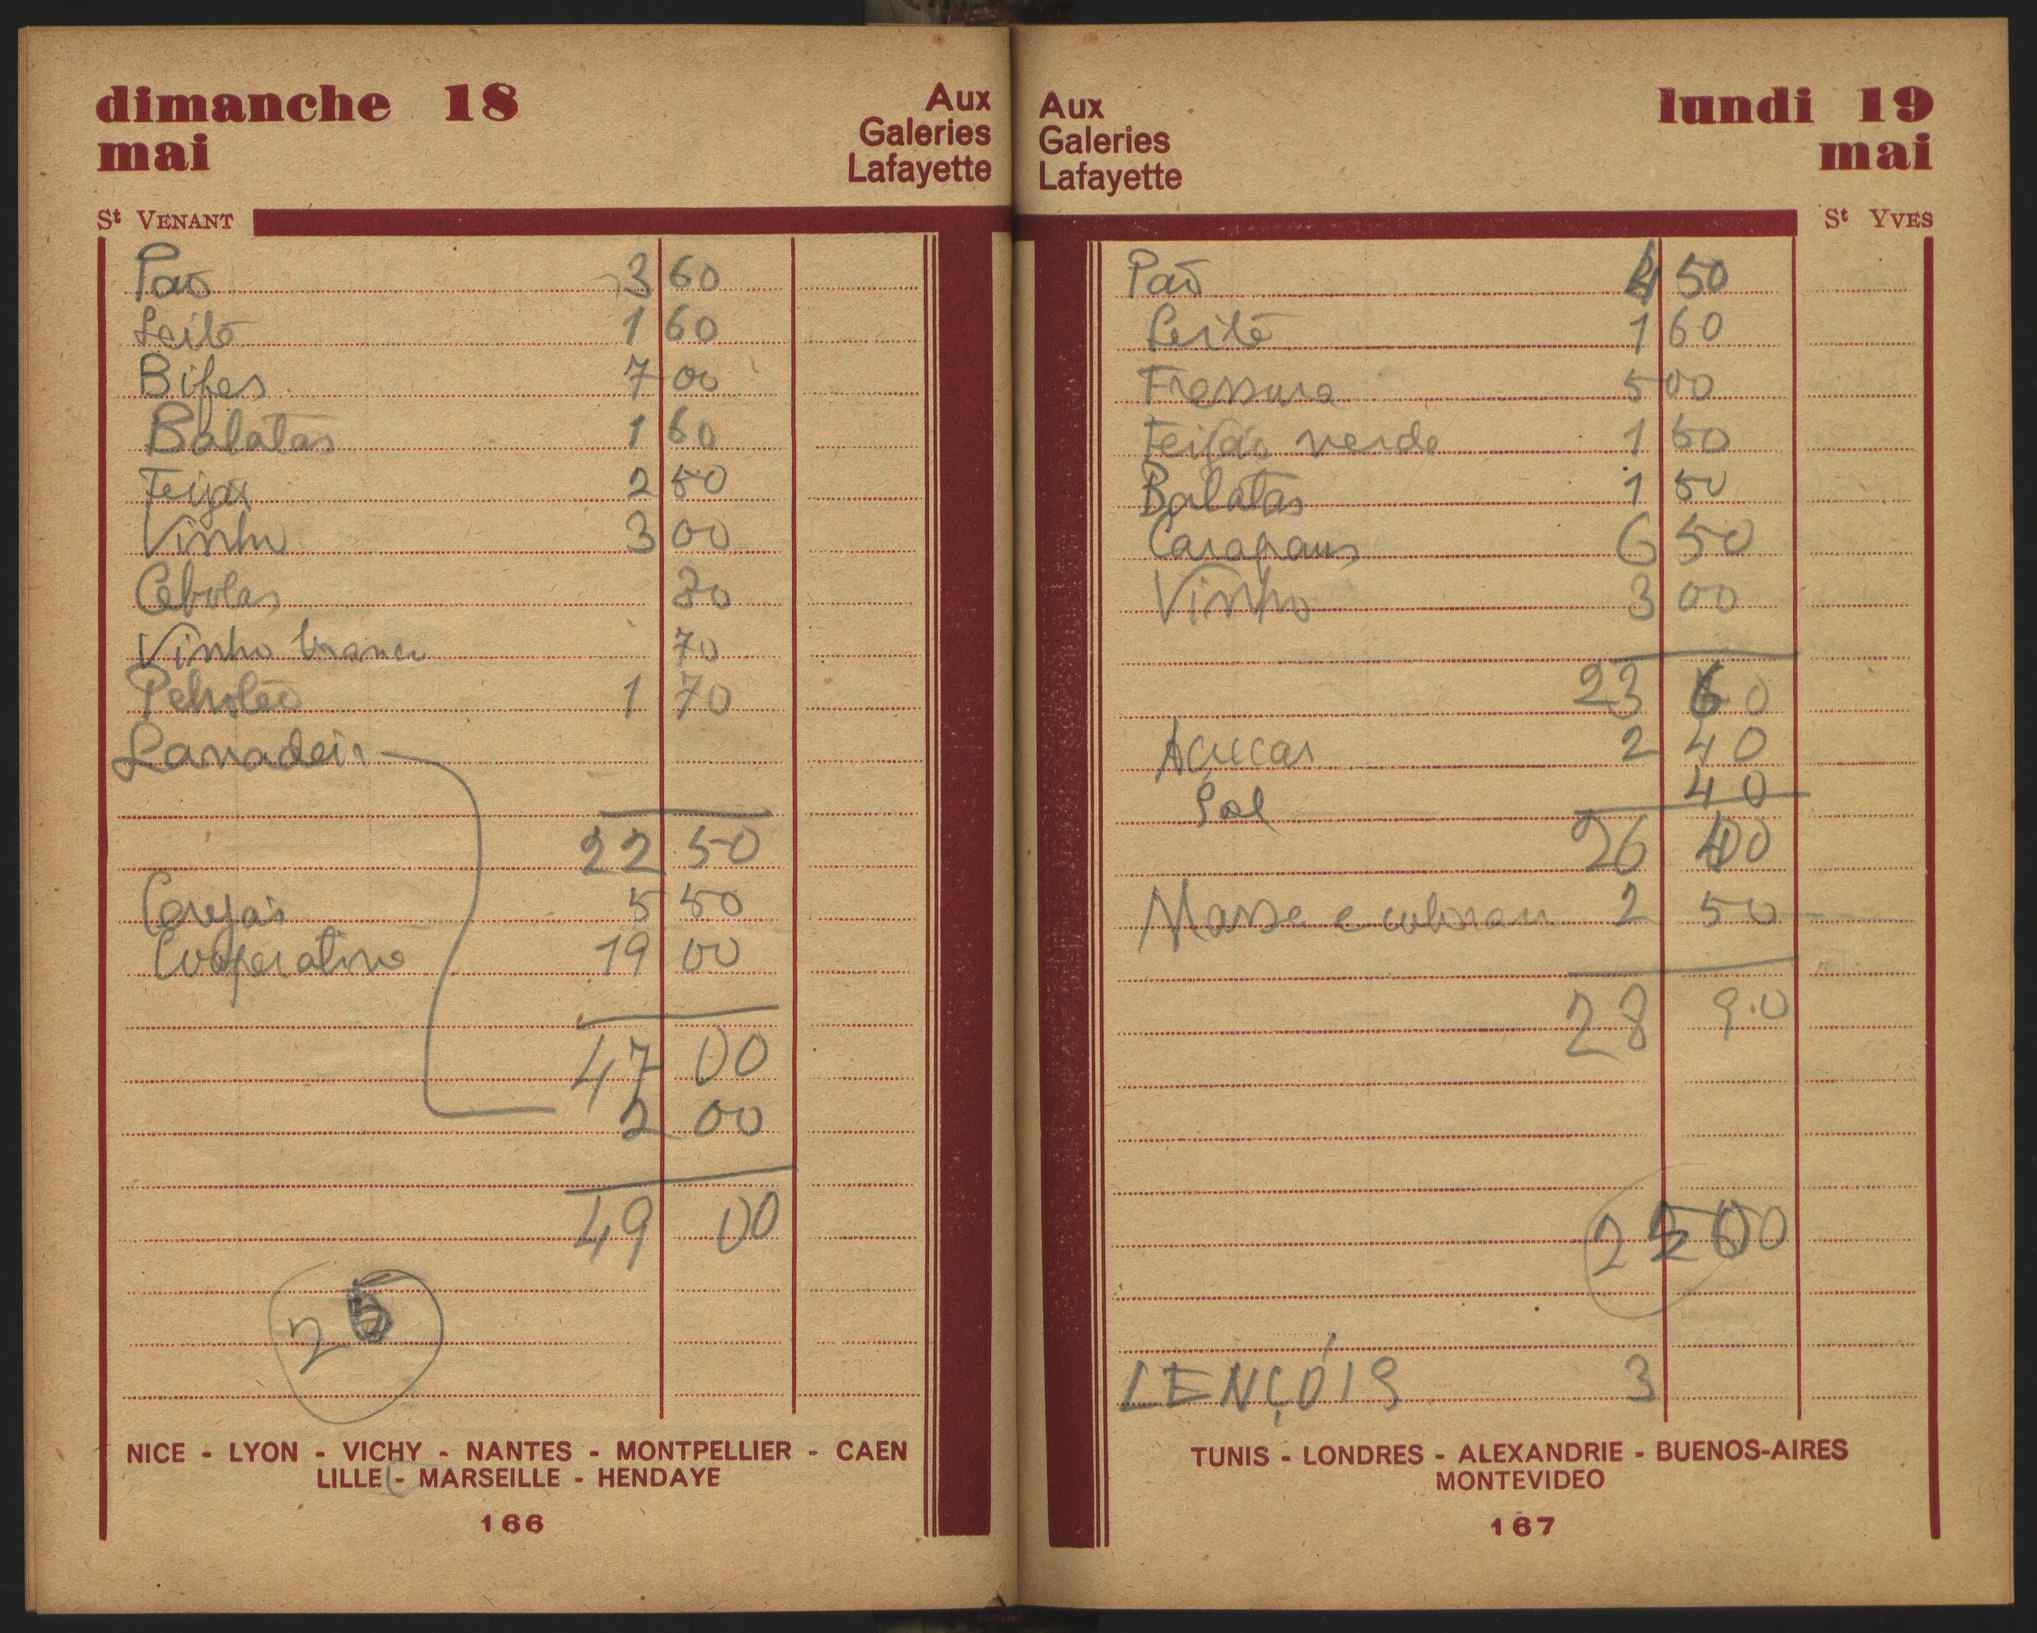 dimanche 18
mai
Aux
Galeries
Lafayette
St VENANT
Pão 3 60
Leite 1 60
Bifes 7 00
Batatas 1 60
Feijão 2 50
Vinho 3 00
Cebolas 80
Vinho branco 70
Petroleo 1 70
Lavadeira
22 50
Cerejas 5 50
Cooperativa 19 00
47 00
2 00
49 00
25
NICE - LYON - VICHY - NANTES - MONTPELLIER - CAEN
LILLE - MARSEILLE - HENDAYE
166
Aux
Galeries
Lafayette
lundi 19
mai
St YVES
Pão 4 50
Leite 1 60
Fressura 5 00
Feijão verde 1 50
Batatas 1 50
Carapaus 6 50
Vinho 3 00
23 60
Açucar 2 40
Sal 40
26 40
Massa e 2 50
28 90
LENÇÓIS 3
TUNIS - LONDRES - ALEXANDRIE - BUENOS-AIRES
MONTEVIDEO
167